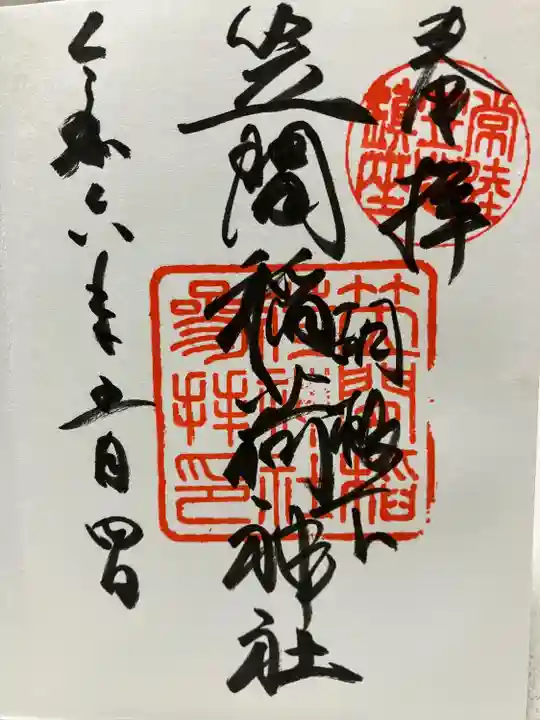 奉拝
常陸
笠間
鎮座
胡桃下
笠間稲荷神社
笠間稲
荷神社
参拝印
令和六年五月四日